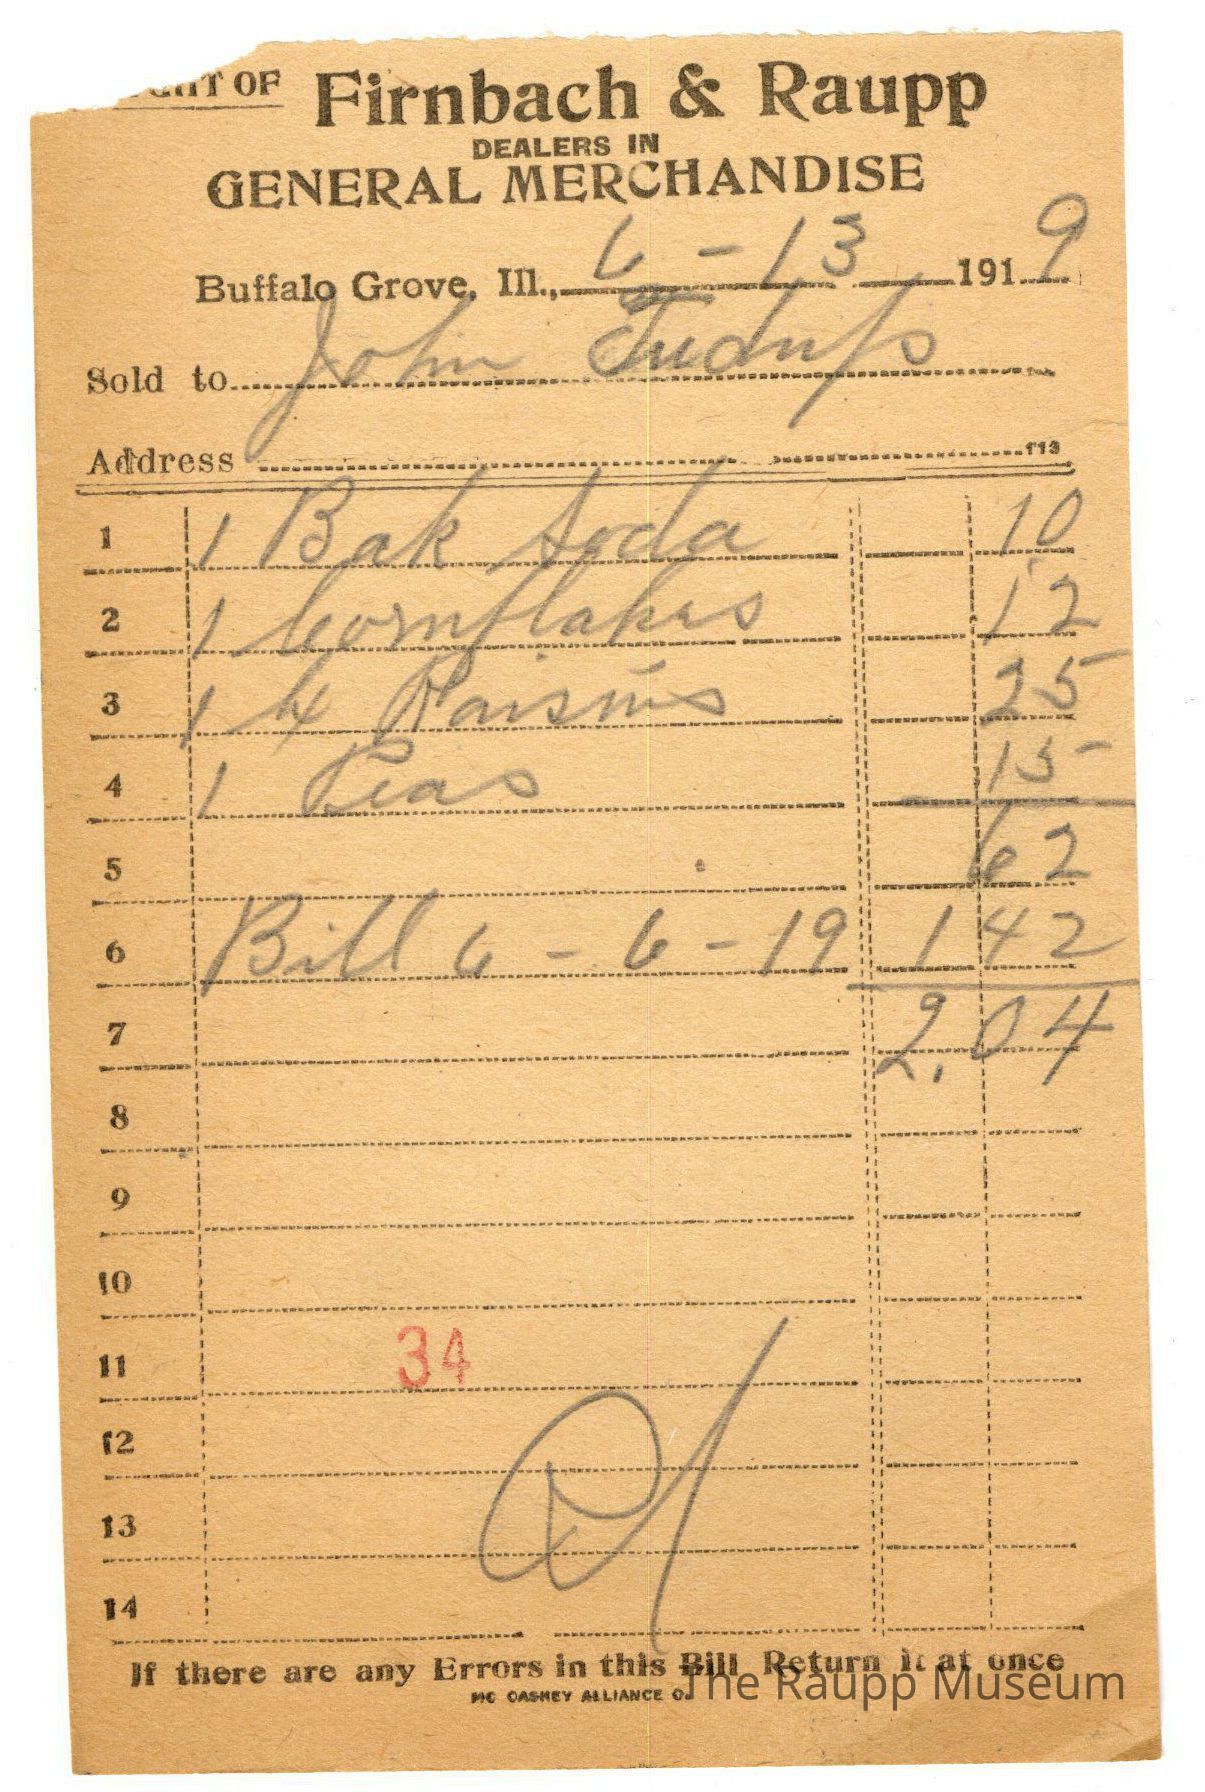 OF Firnbach & Raupp
DEALERS IN
GENERAL MERCHANDISE
Buffalo Grove, Ill., 6 - 13 1919
Sold to John
Address f13
1 1 Bak Soda 10
2 1 Cornflakes 12
3 1 Raisins 25
4 1 Peas 15
5 62
6 Bill 6 - 6 - 19 1 42
7 2.04
8
9
10
11 34
12
13
14
If there are any Errors in this Bill Return it at once
MC CASKEY ALLIANCE O.
The Raupp Museum